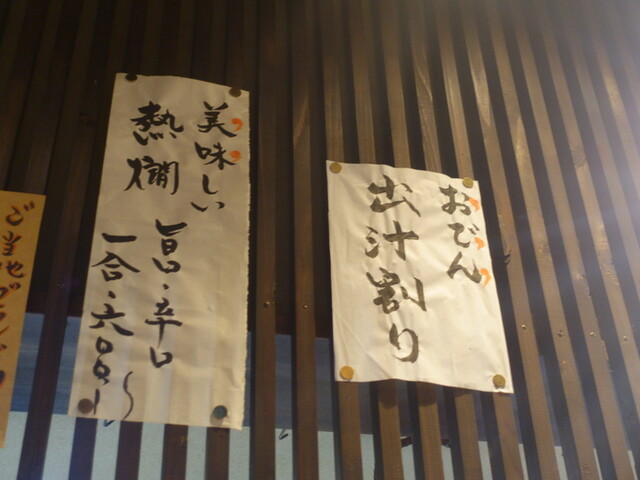 おでん
出汁割り
美味しい
熱燗
旨口・辛口
一合・六〇〇円〜